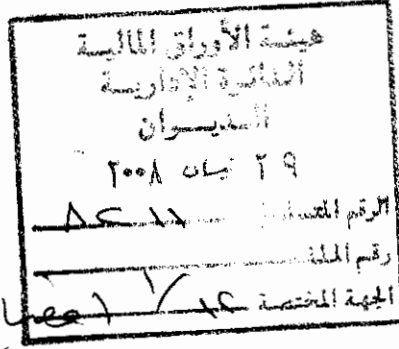 هيئة الأوراق المالية
الدائرة الإدارية
الديوان
٢٩ نيسان ٢٠٠٨
الرقم المتسلسل
رقم الملف
الجهة المختصة